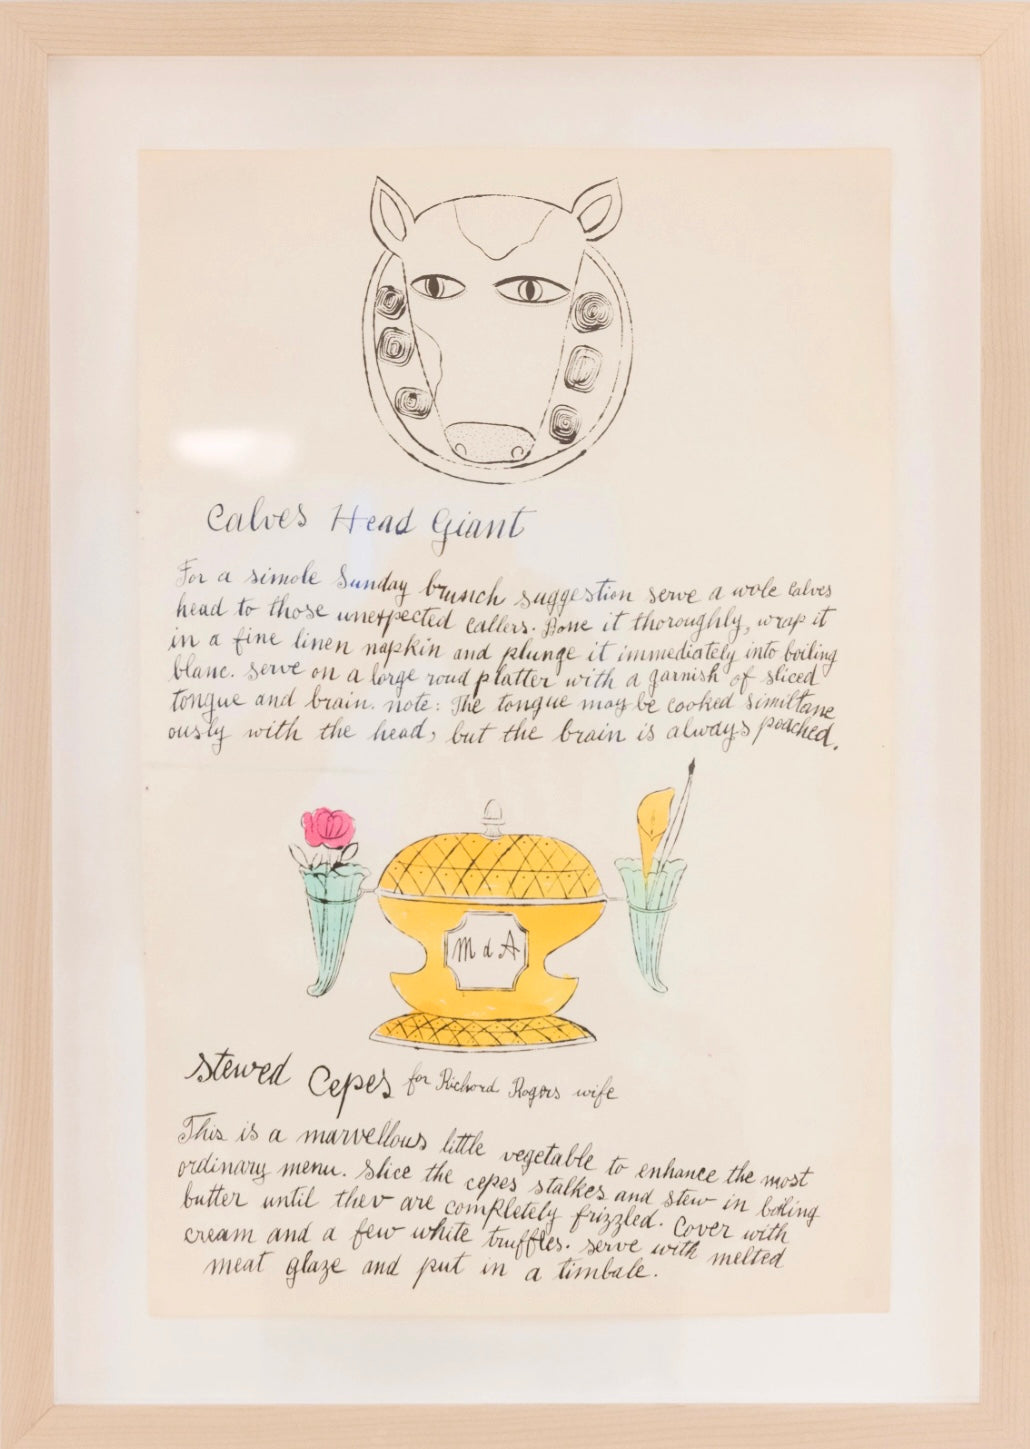 Calves Head Giant
For a simole Sunday brunch suggestion serve a wole Calves
head to those unexpected callers. Bone it thoroughly, wrap it
in a fine linen napkin and plunge it immediately into boiling
blanc. serve on a large roud platter with a garnish of sliced
tongue and brain. note: The tongue may be cooked similtane
ously with the head, but the brain is always poached.
M d A
Stewed Cepes for Richard Rogers wife
This is a marvellous little vegetable to enhance the most
ordinary menu. Slice the cepes stalkes and stew in boiling
butter until thev are completely frizzled. Cover with
cream and a few white truffles. serve with melted
meat glaze and put in a timbale.